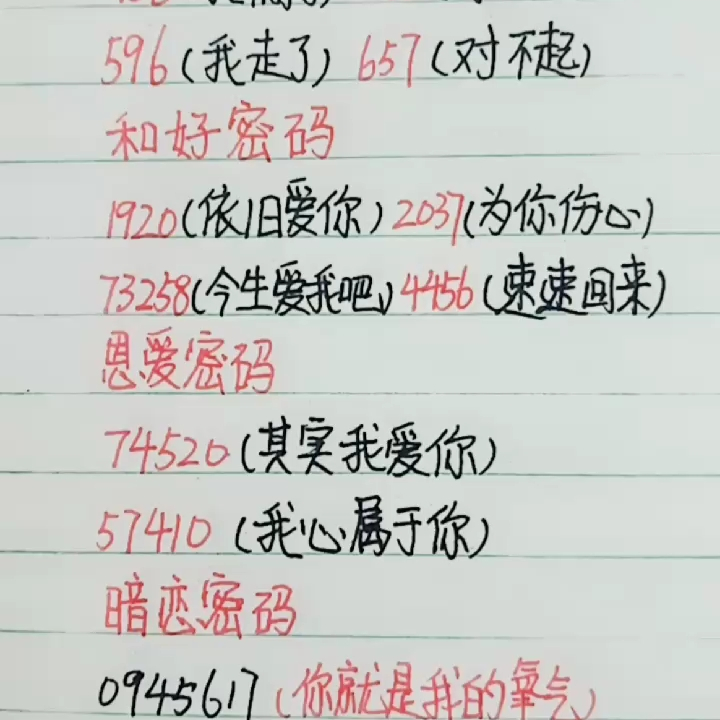 596(我走了) 657(对不起)
和好密码
1920(依旧爱你)2037(为你伤心)
73258(今生爱我吧)4456(速速回来)
恩爱密码
74520(其实我爱你)
57410(我心属于你)
暗恋密码
0945617(你就是我的氧气)